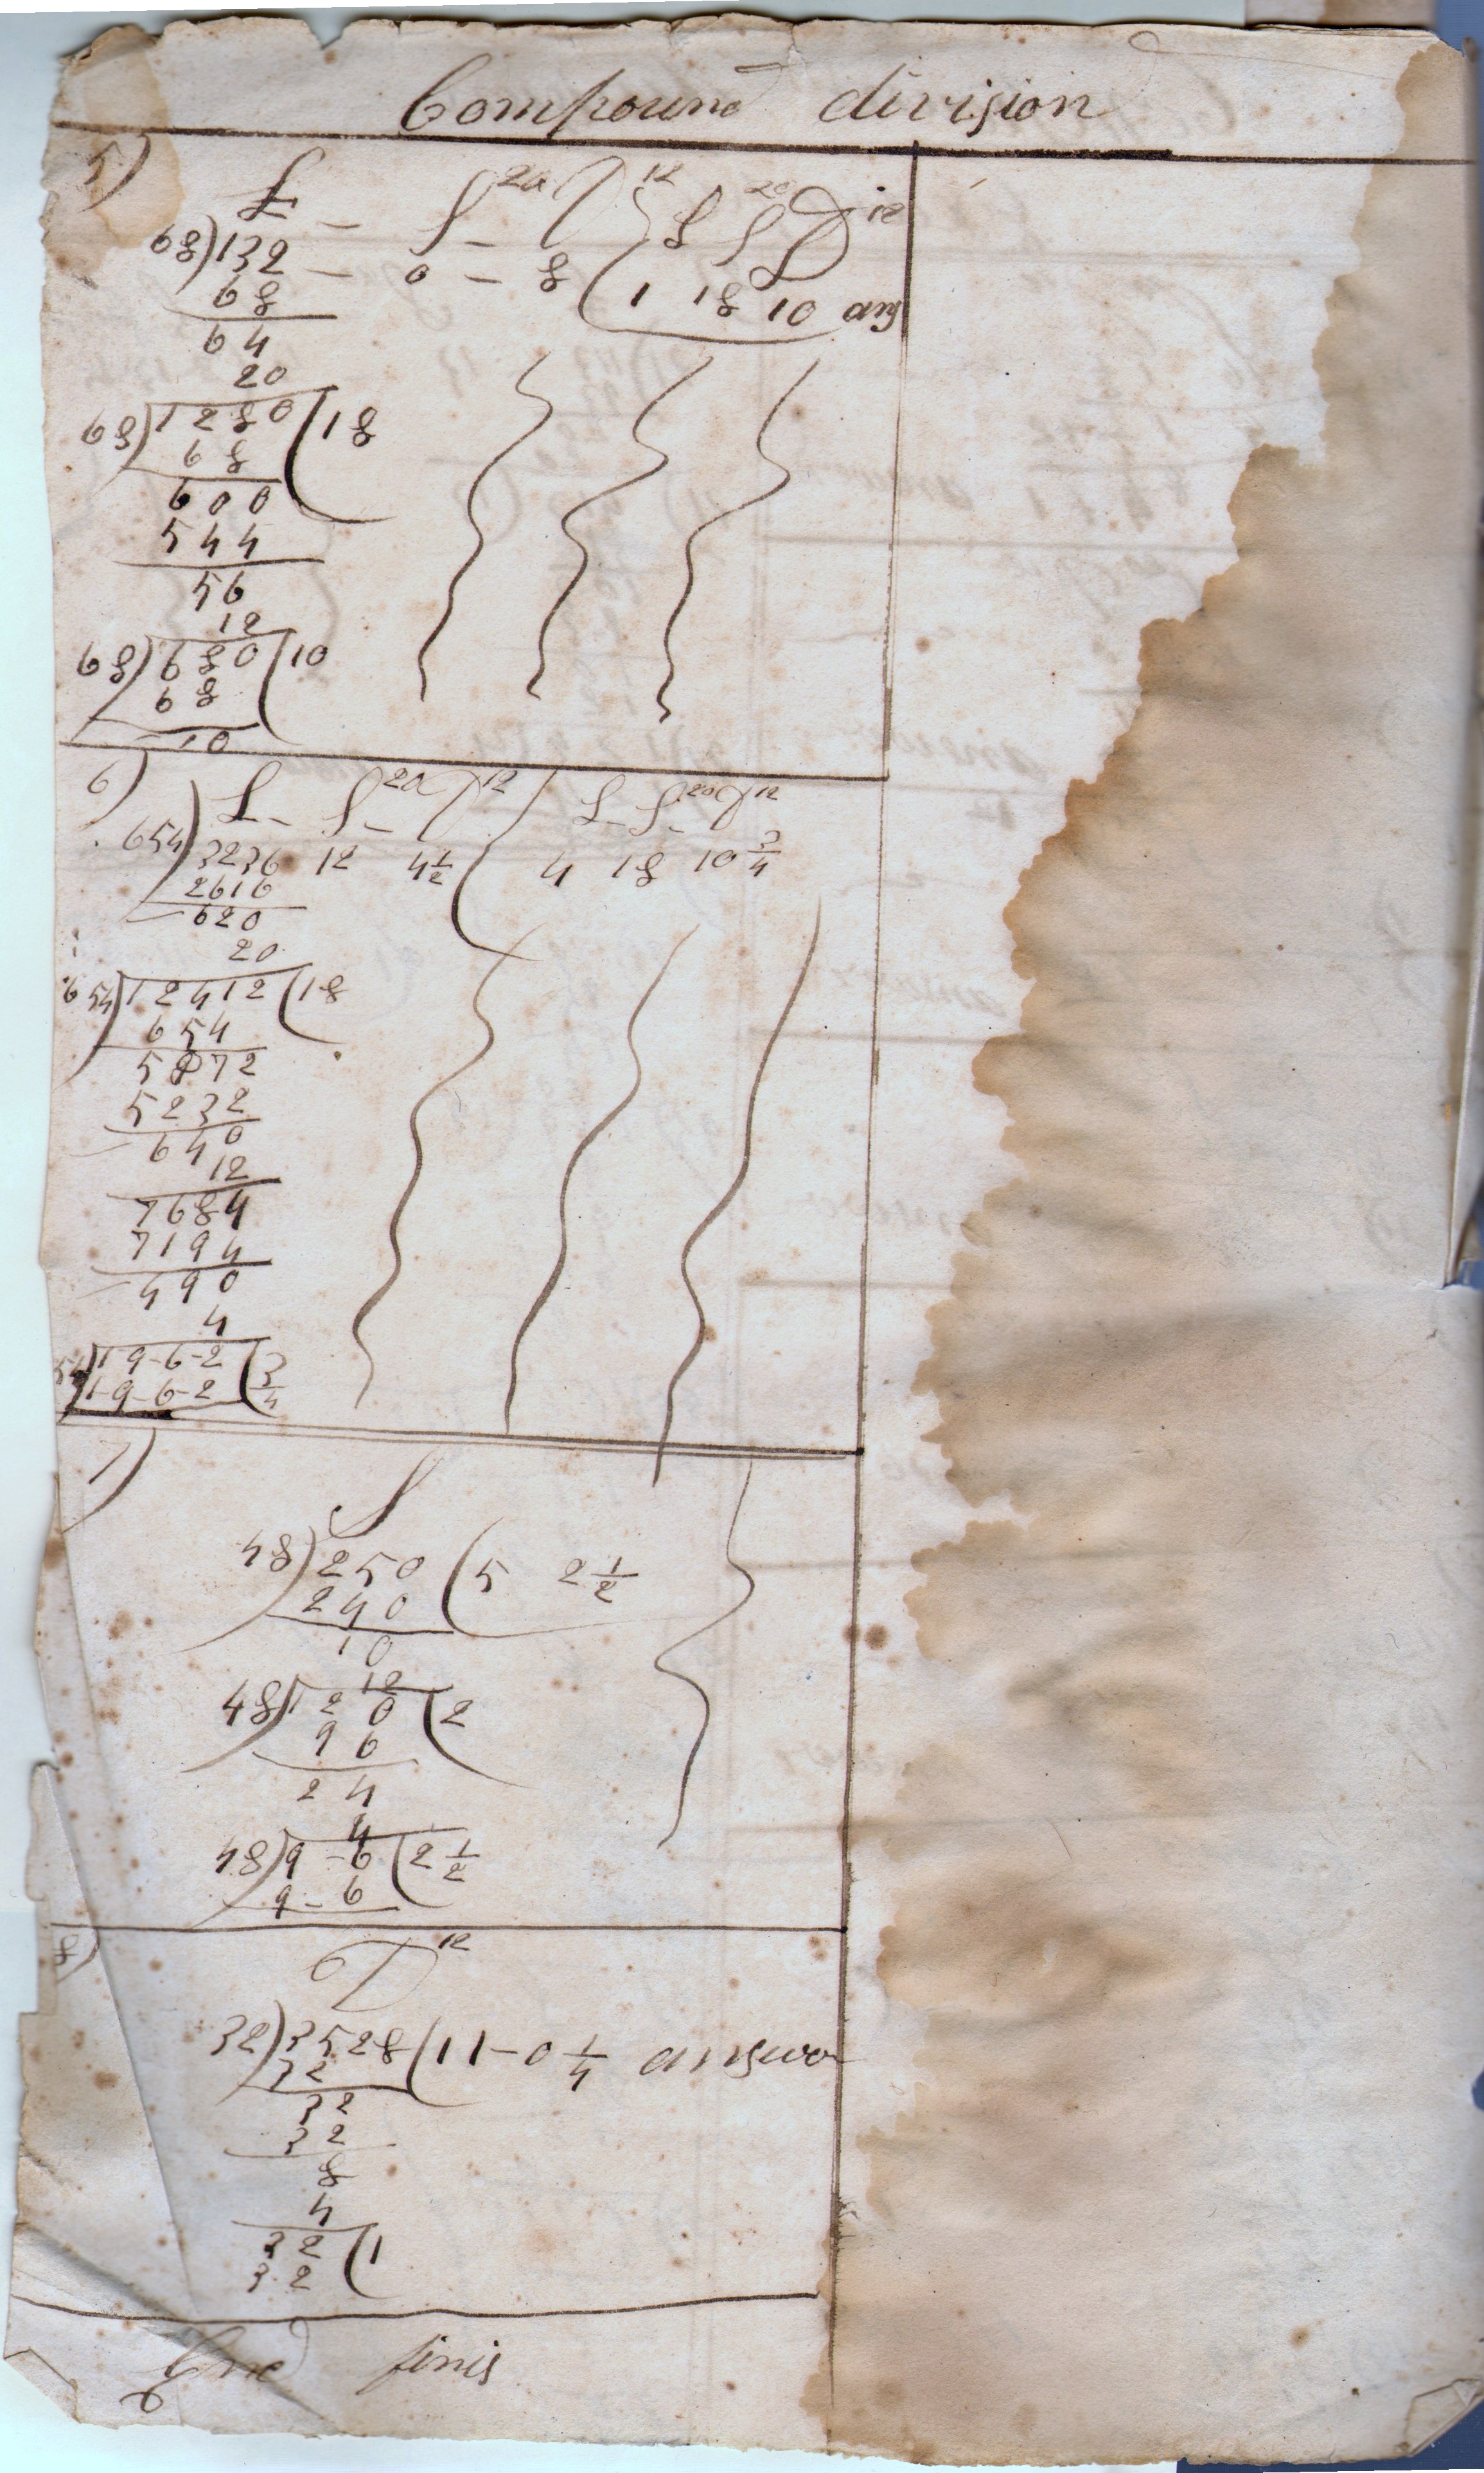 Compound division
5)
£ - S 20 D 12 £ S 20 D 12
68) 132 - 0 - 8 ( 1 18 10 ans
68
64
20
68) 1280 ( 18
68
600
544
56
12
68) 680 ( 10
68
10
6)
£ - S 20 - D 12 £ - S 20 - D 12
654) 3236 12 4 1/2 ( 4 18 10 3/4
2616
620
20
654) 12412 ( 18
654
5872
5232
640
12
7684
7194
490
4
54) 19-6-2 ( 3/4
19-6-2
7)
S
48) 250 ( 5 2 1/2
240
10
12
48) 120 ( 2
96
24
4
48) 9-6 ( 2 1/2
9-6
8)
D 12
32) 3528 ( 11-0 1/4 answer
32
32
32
8
4
32 ( 1
32
finis